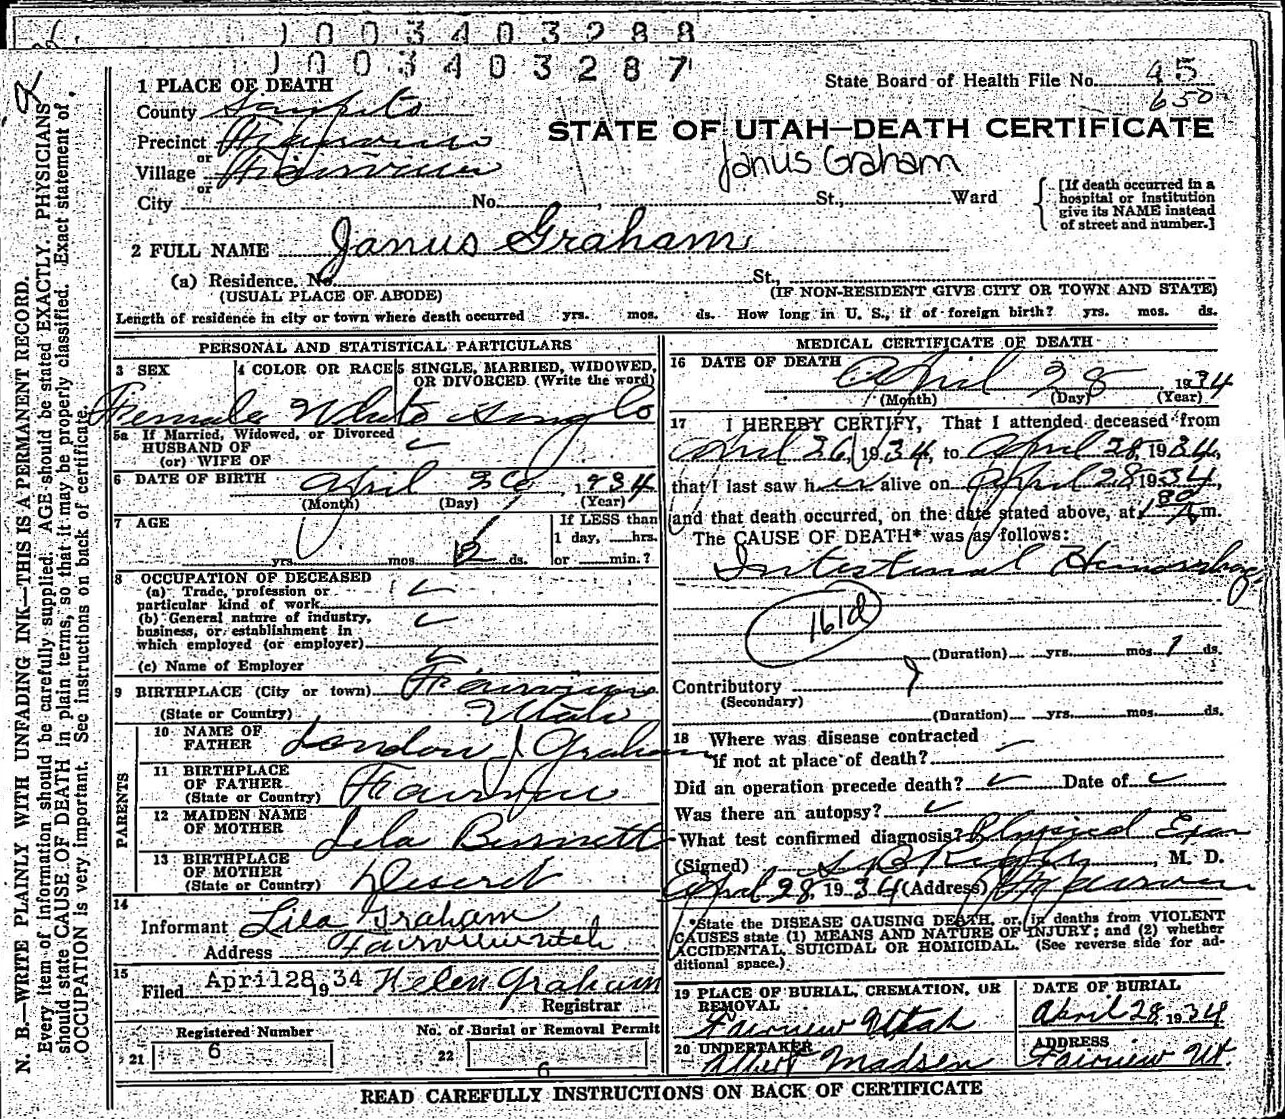 0 0 3 4 0 3 2 8 8
0 0 3 4 0 3 2 8 7
State Board of Health File No. 45
650
1 PLACE OF DEATH
County Sanpete
Precinct Fairview
or
Village Fairview
or
City No. , St., Ward
STATE OF UTAH—DEATH CERTIFICATE
Janus Graham
[If death occurred in a
hospital or institution
give its NAME instead
of street and number.]
2 FULL NAME Janus Graham
(a) Residence. No. St.,
(USUAL PLACE OF ABODE) (IF NON-RESIDENT GIVE CITY OR TOWN AND STATE)
Length of residence in city or town where death occurred yrs. mos. ds. How long in U. S., if of foreign birth? yrs. mos. ds.
PERSONAL AND STATISTICAL PARTICULARS
3 SEX 4 COLOR OR RACE 5 SINGLE, MARRIED, WIDOWED,
OR DIVORCED (Write the word)
Female White Single
5a If Married, Widowed, or Divorced
HUSBAND OF
(or) WIFE OF
6 DATE OF BIRTH April 26, 1934
(Month) (Day) (Year)
7 AGE If LESS than
1 day, hrs.
yrs. mos. 2 ds. or min.?
8 OCCUPATION OF DECEASED
(a) Trade, profession or
particular kind of work
(b) General nature of industry,
business, or establishment in
which employed (or employer)
(c) Name of Employer
9 BIRTHPLACE (City or town) Fairview
(State or Country) Utah
PARENTS
10 NAME OF
FATHER Landon J Graham
11 BIRTHPLACE
OF FATHER
(State or Country) Fairview
12 MAIDEN NAME
OF MOTHER Lila Bennett
13 BIRTHPLACE
OF MOTHER
(State or Country) Deseret
14
Informant Lila Graham
Address Fairview Utah
15
Filed April 28 19 34 Helen Graham
Registrar
Registered Number No. of Burial or Removal Permit
21 6 22 6
MEDICAL CERTIFICATE OF DEATH
16 DATE OF DEATH
April 28, 1934
(Month) (Day) (Year)
17 I HEREBY CERTIFY, That I attended deceased from
April 26, 1934, to April 28, 1934,
that I last saw her alive on April 28, 1934,
and that death occurred, on the date stated above, at m.
The CAUSE OF DEATH* was as follows:
Intestinal Hemorrhage
161d
(Duration) yrs. mos. 1 ds.
Contributory
(Secondary)
(Duration) yrs. mos. ds.
18 Where was disease contracted
if not at place of death?
Did an operation precede death? Date of
Was there an autopsy?
What test confirmed diagnosis? Physical Exam
(Signed) , M. D.
April 28, 1934 (Address) Fairview
*State the DISEASE CAUSING DEATH, or, in deaths from VIOLENT
CAUSES state (1) MEANS AND NATURE OF INJURY; and (2) whether
ACCIDENTAL, SUICIDAL OR HOMICIDAL. (See reverse side for ad-
ditional space.)
19 PLACE OF BURIAL, CREMATION, OR
REMOVAL
Fairview Utah
DATE OF BURIAL
April 28, 1934
20 UNDERTAKER
Albert Madsen
ADDRESS
Fairview Ut
READ CAREFULLY INSTRUCTIONS ON BACK OF CERTIFICATE
N. B.—WRITE PLAINLY WITH UNFADING INK—THIS IS A PERMANENT RECORD.
Every item of information should be carefully supplied. AGE should be stated EXACTLY. PHYSICIANS
should state CAUSE OF DEATH in plain terms, so that it may be properly classified. Exact statement of
OCCUPATION is very important. See instructions on back of certificate.